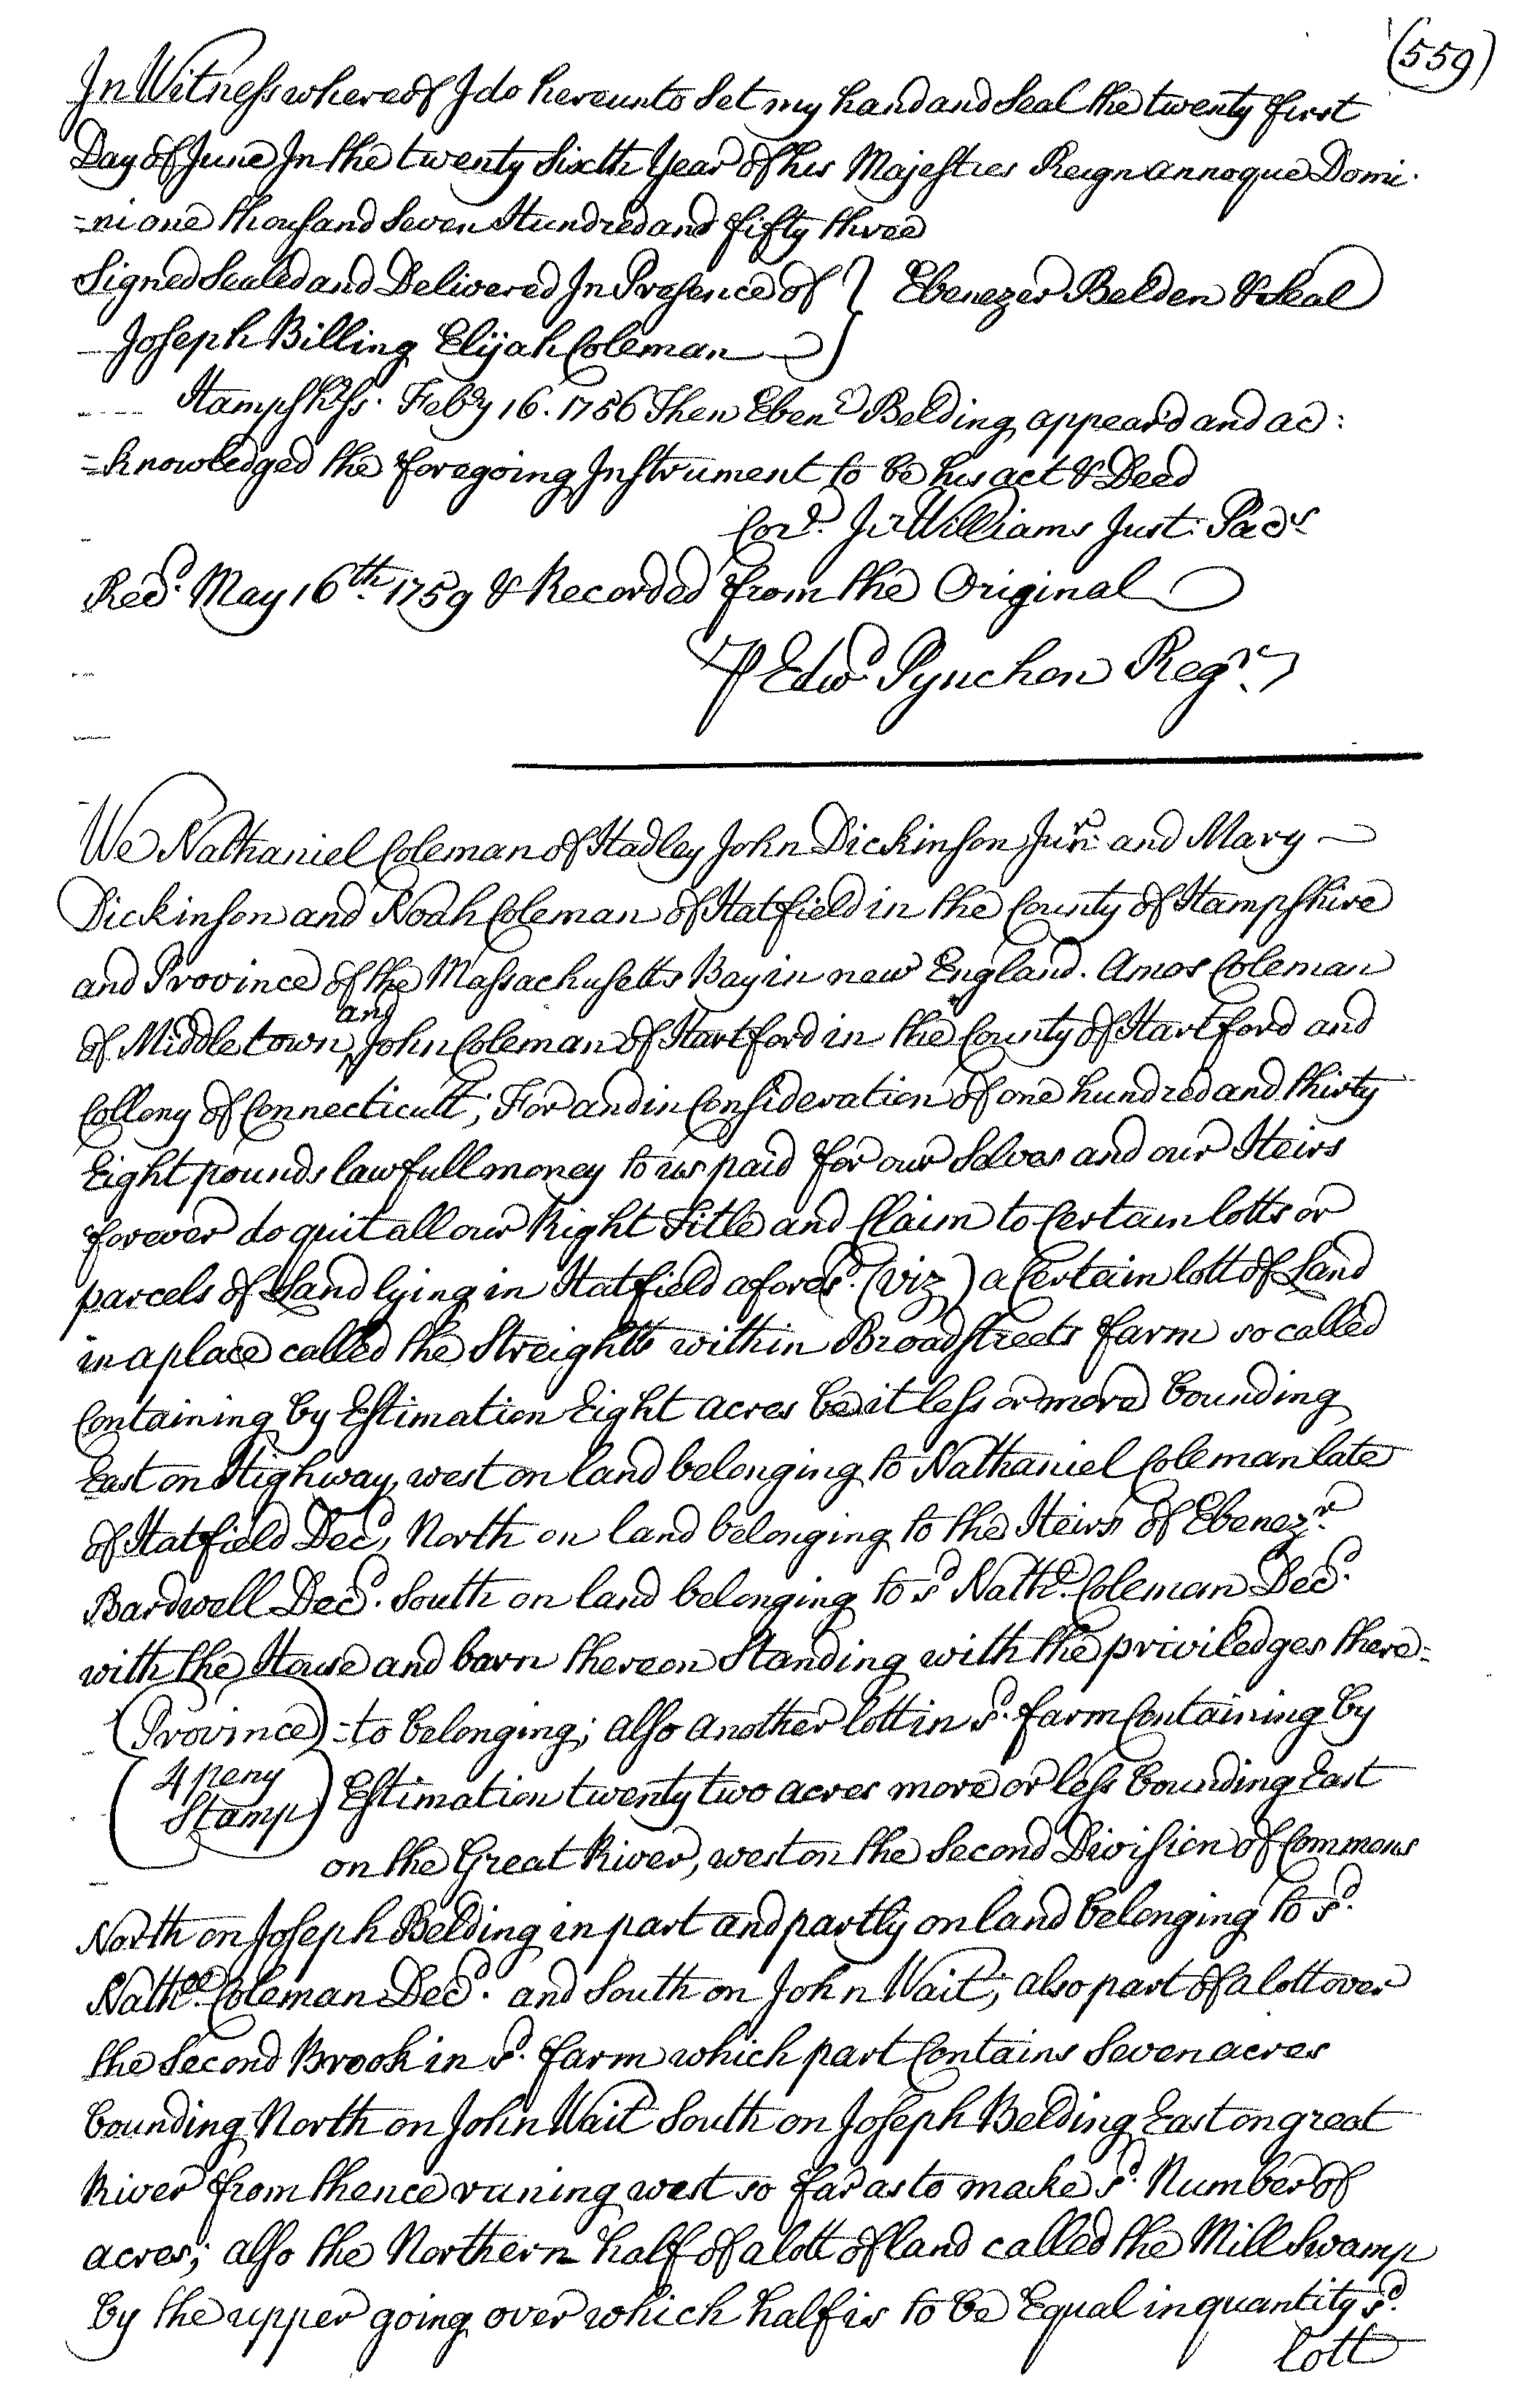 (559)
In Witness whereof I do hereunto Set my hand and Seal the twenty first
Day of June In the twenty Sixth Year of his Majesties Reign annoque Domi-
-ni one thousand Seven Hundred and fifty three
Signed Sealed and Delivered In Presence of } Ebenezer Belden & Seal
Joseph Billing Elijah Coleman }
Hampshr. ss. Feby 16. 1756 Then Ebenr Belding appeard and ac:
=knowledged the foregoing Instrument to be his act & Deed
Cord. Jr Williams Just: Pacs
Recd. May 16th. 1759 & Recorded from the Original
P Edwd Pynchon Regr.
We Nathaniel Coleman of Hadley John Dickinson Junr. and Mary
Dickinson and Noah Coleman of Hatfield in the County of Hampshire
and Province of the Massachusetts Bay in new England. Amos Coleman
of Middletown ^and John Coleman of Hartford in the County of Hartford and
Collony of Connecticutt; For and in Consideration of one hundred and thirty
Eight pounds lawfull money to us paid for our Selves and our Heirs
forever do quit all our Right Title and Claim to Certain lotts or
parcels of Land lying in Hatfield aforesd. (viz) a Certain lott of Land
in a place called the Streights within Broadstreets farm so called
Containing by Estimation Eight acres be it less or more bounding
East on Highway, west on land belonging to Nathaniel Coleman late
of Hatfield Decd, North on land belonging to the Heirs of Ebenezr.
Bardwell Decd. South on land belonging to sd Nathll. Coleman Decd.
with the House and barn thereon Standing with the priviledges there=
(Province) =to belonging; also another lott in sd. farm Containing by
(4 peny Stamp) Estimation twenty two acres more or less bounding East
on the Great River, west on the Second Division of Commons
North on Joseph Belding in part and partly on land belonging to sd.
Nathll. Coleman Decd. and South on John Wait; also part of a lott over
the Second Brook in sd. farm which part Contains Seven acres
bounding North on John Wait South on Joseph Belding East on great
River from thence runing west so far as to make sd. Number of
acres; also the Northern half of a lott of land called the Mill Swamp
by the upper going over which half is to be Equal in quantity sd.
lott